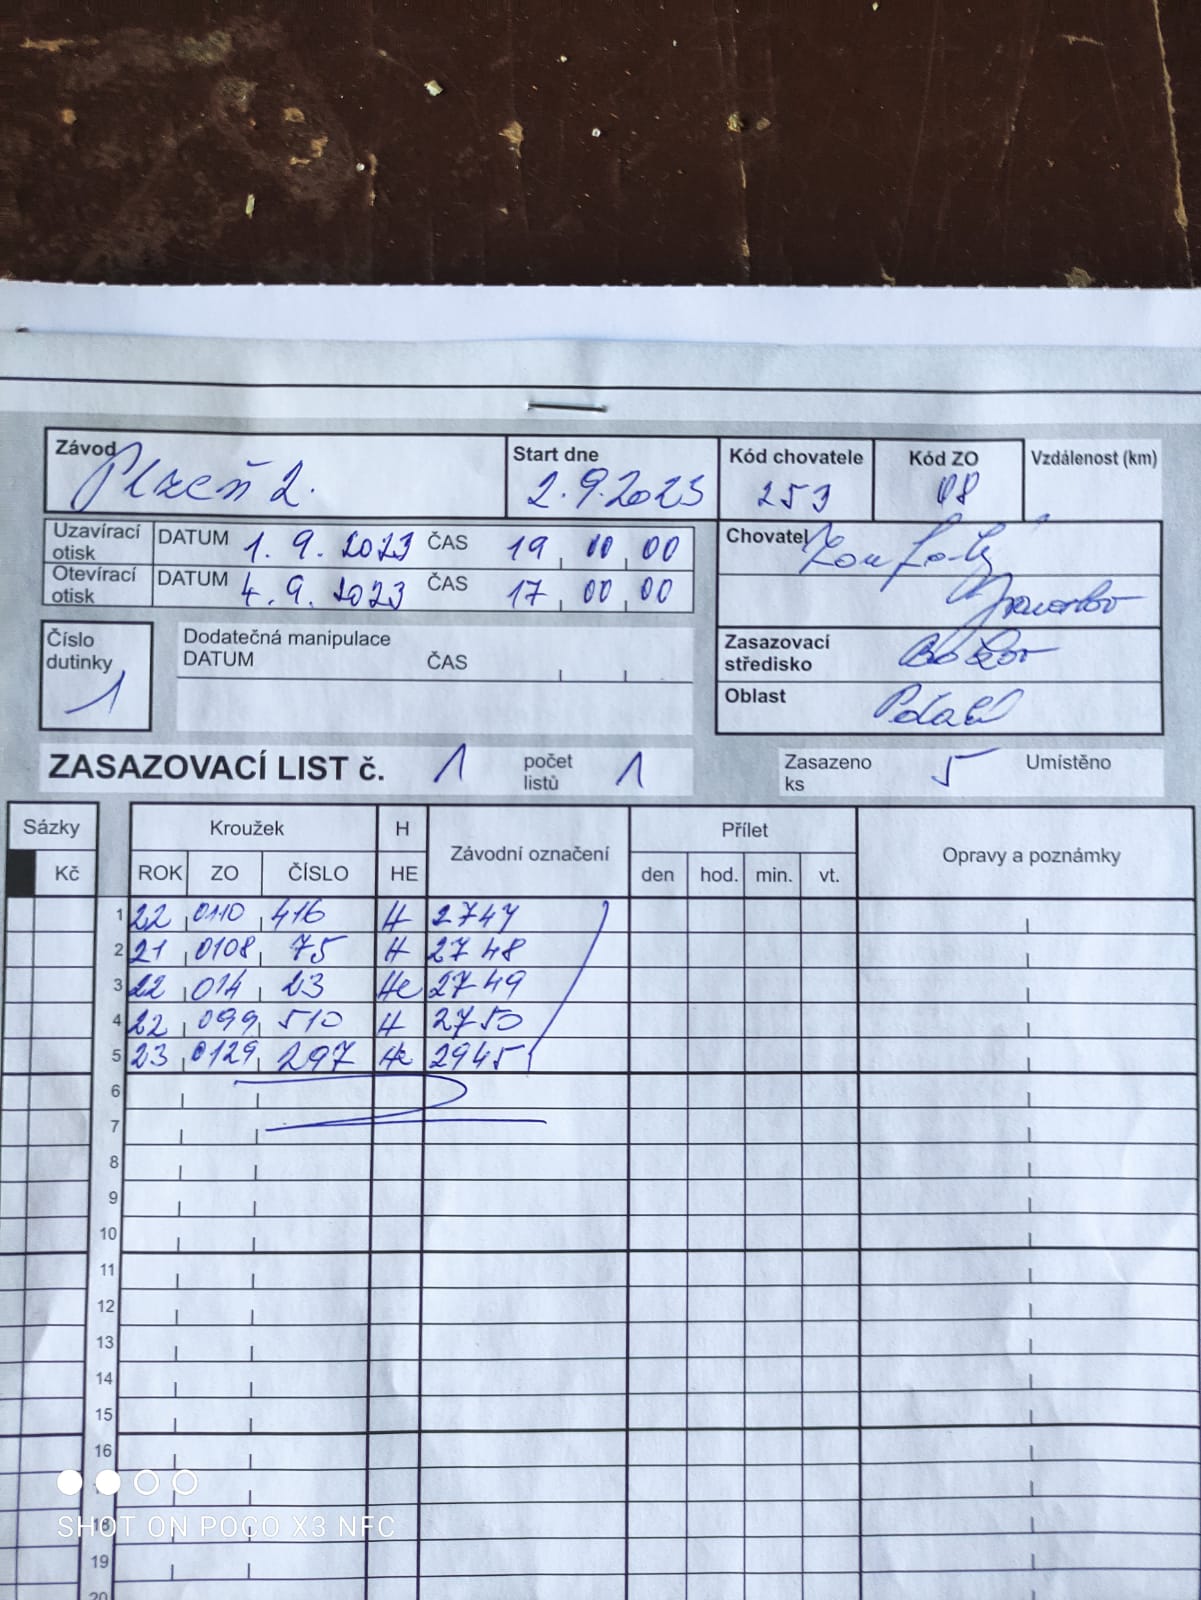 Závod
Plzeň 2.
Start dne
2.9.2023
Kód chovatele
253
Kód ZO
08
Vzdálenost (km)
Uzavírací otisk DATUM 1. 9. 2023 ČAS 19 00 00
Otevírací otisk DATUM 4. 9. 2023 ČAS 17 00 00
Chovatel
Zasazovací středisko
Oblast
Číslo dutinky
1
Dodatečná manipulace
DATUM ČAS
ZASAZOVACÍ LIST č. 1 počet listů 1
Zasazeno ks 5 Umístěno
Sázky Kroužek H Závodní označení Přílet Opravy a poznámky
Kč ROK ZO ČÍSLO HE den hod. min. vt.
1 22 0110 416 H 2747
2 21 0108 75 H 2748
3 22 014 23 He 2749
4 22 099 510 H 2750
5 23 0129 297 He 2945
6
7
8
9
10
11
12
13
14
15
16
18
19
20
SHOT ON POCO X3 NFC